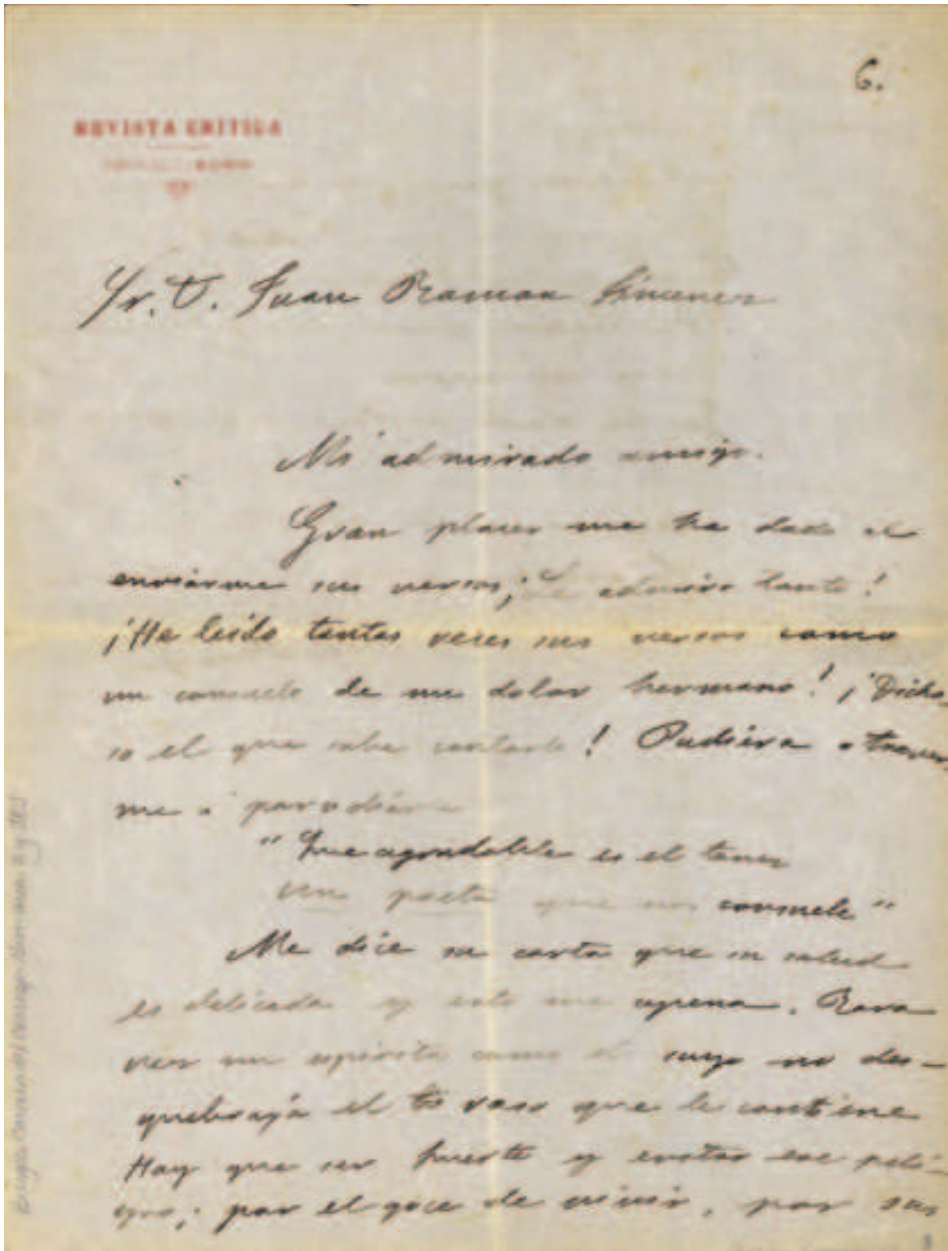 6.
REVISTA CRÍTICA
Sr. D. Juan Ramon Jimenez
Mi admirado amigo.
Gran placer me ha dado el
enviarme sus versos; ¡Le admiro tanto!
¡He leido tantas veces sus versos como
un consuelo de mi dolor hermano! ¡Dicho
so el que sabe cantarlo! Pudiera atrever
me a parodiarle
"Que agradable es el tener
un poeta que nos consuele"
Me dice su carta que su salud
es delicada y esto me apena. Rara
vez un espiritu como el suyo no des-
quebraja el vaso que le contiene
Hay que ser fuerte y evitar ese peli-
gro; por el goce de vivir, por sus